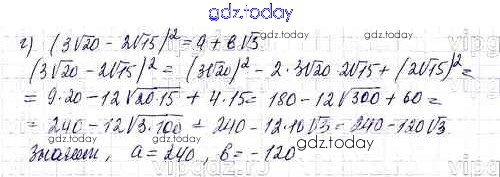 gdz.today
г) (3√20 − 2√15)² = a + в√3
gdz.today
(3√20 − 2√15)² = (3√20)² − 2·3√20·2√15 + (2√15)² =
= 9·20 − 12√20·15 + 4·15 = 180 − 12√300 + 60 =
= 240 − 12√3·100 = 240 − 12·10√3 = 240 − 120√3
Значит, a = 240, в = −120.
gdz.today